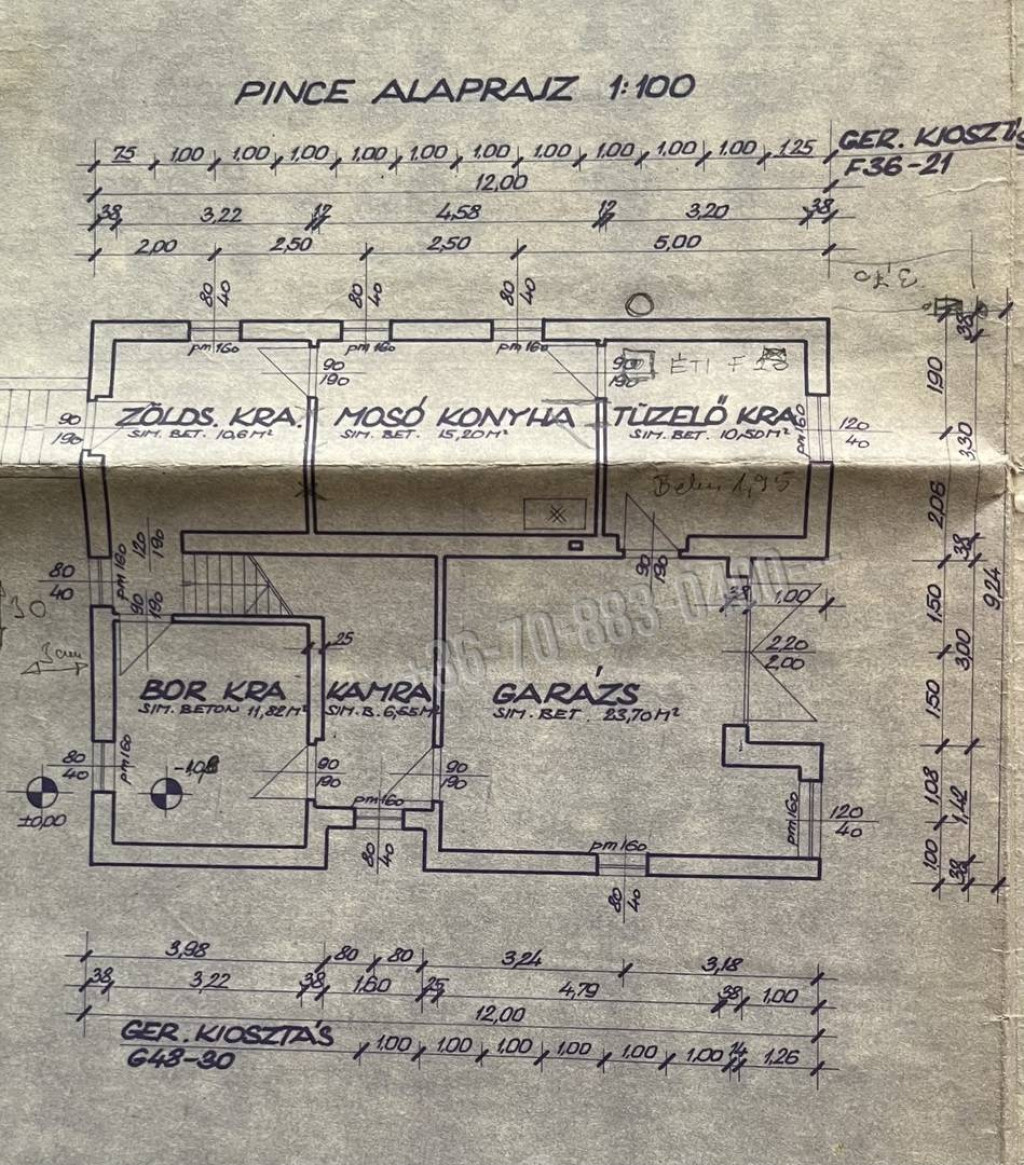 PINCE ALAPRAJZ 1:100
GER. KIOSZTÁS
F36-21
75 1,00 1,00 1,00 1,00 1,00 1,00 1,00 1,00 1,00 1,00 1,25
12,00
38 3,22 12 4,58 12 3,20 38
2,00 2,50 2,50 5,00
3,70
80 40 80 40 80 40
pm 160 pm 160 pm 160
90 190 90 190 ÉTI F
90 190 ZÖLDS. KRA. MOSÓ KONYHA TÜZELŐ KRA pm 160 120 40
SIM. BET. 10,6 M² SIM. BET. 15,20 M² SIM. BET. 10,50 M²
1,95
38 1,90 3,30 2,06 38
80 40 pm 160 120 190 90 190
90 190
38 1,00
30
3 cm
25
+36-70-883-0410
2,20 2,00
1,50 3,00 9,24 1,50
BOR KRA KAMRA GARÁZS
SIM. BETON 11,82 M² SIM. B. 6,55 M² SIM. BET. 23,70 M²
80 40 pm 160 90 190 90 190
±0,00
pm 160 pm 160 120 40
1,08 1,42 1,00 38
80 40 pm 160 80 40
3,98 80 80 3,24 3,18
38 3,22 38 1,60 25 4,79 38 1,00
12,00
GER. KIOSZTÁS
G48-30
1,00 1,00 1,00 1,00 1,00 1,00 14 1,26